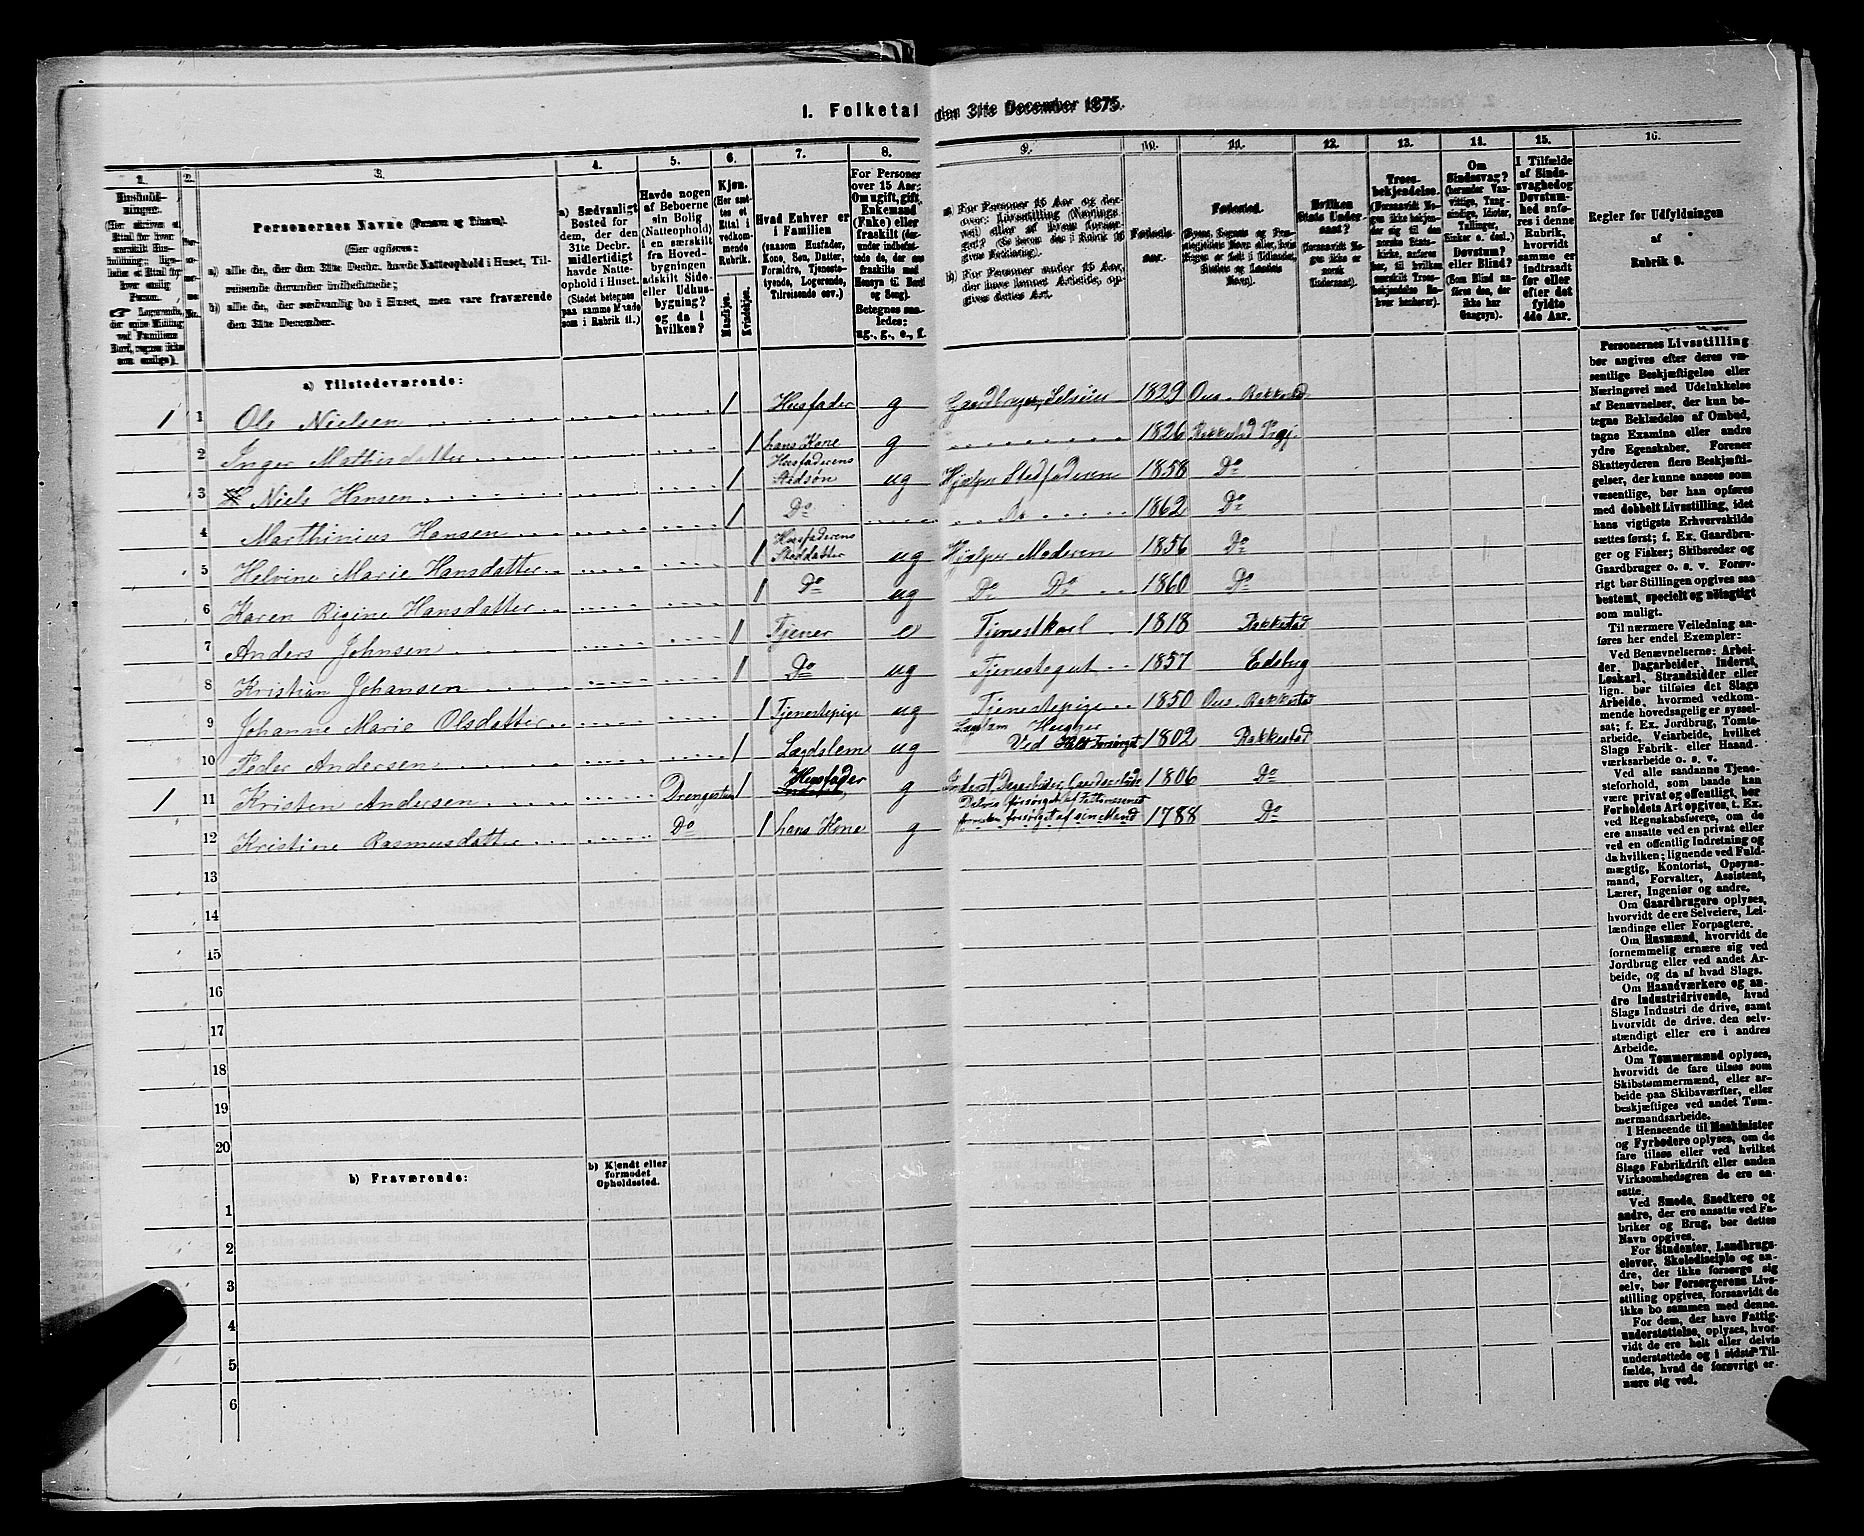 1. Folketal den 31te December 1875.
1. 2. 3. 4. 5. 6. 7. 8. 9. 10. 11. 12. 13. 14. 15. 16.
Personernes Navne (Fornavn og Tilnavn).
(Her opføres:
a) alle de, der den 31te Decbr. havde Natteophold i Huset, Tilreisende derunder indbefattede;
b) alle de, der sædvanlig bo i Huset, men vare fraværende den 31te December.
a) Sædvanligt
Bosted for
dem, der den
31te Decbr.
midlertidigt
havde Natte-
ophold i Huset.
(Stedet betegnes
paa samme Maade
som i Rubrik 11.)
Havde nogen
af Beboerne
sin Bolig
(Natteophold)
i en særskilt
fra Hoved-
bygningen
adskilt Side-
eller Udhus-
bygning?
og da i
hvilken?
Kjøn.
(Her sæt-
tes et
Ettal i
vedkom-
mende
Rubrik.
Mandkjøn.
Kvindekjøn.
Hvad Enhver er
i Familien
(saasom Husfader,
Kone, Søn, Datter,
Forældre, Tjeneste-
tyende, Logerende,
Tilreisende osv.)
For Personer
over 15 Aar:
Om ugift, gift,
Enkemand
(Enke) eller
fraskilt
Betegnes saa-
ledes:
ug., g., e., f.
Fødested.
Hvilken
Stats Under-
saat?
Om
Sindssvag?
Døvstum?
eller Blind?
I Tilfælde
af Sinds-
svaghed og
Døvstum-
hed anfø-
res i denne
Rubrik,
hvorvidt
samme er
indtraadt
før eller
efter det
fyldte
4de Aar.
Regler for Udfyldningen
af
Rubrik 9.
a) Tilstedeværende:
1 1 Ole Nielsen 1 Husfader g Gaardbruger, Selveier 1829 Øus. Rakkestad
2 Inger Mathisdatter 1 hans Kone g 1826 Rakkestad Prgj.
3 Niels Hansen 1 Husfaderens Stedsøn ug Hjælper Stedfaderen 1858 Do
4 Marthinius Hansen 1 Do Do 1862 Do
5 Helvine Marie Hansdatter 1 Husfaderens Steddatter ug Hjælper Moderen 1856 Do
6 Karen Rigine Hansdatter 1 Do ug Do Do 1860 Do
7 Anders Johnsen 1 Tjener e Tjenestkarl 1818 Rakkestad
8 Kristian Johansen 1 Do ug Tjenestegut 1857 Edsbrg
9 Johanne Marie Olsdatter 1 Tjenestepige ug Tjenestepige 1850 Øus. Rakkestad
10 Peder Andersen 1 Lægdslem ug Ved Forsørget 1802 Rakkestad
1 11 Kristen Andersen Drengestuen 1 Husfader g Inderst, Dagarbeider, Delvis forsørget af Fattivæsenet 1806 Do
12 Kristine Rasmusdatter Do 1 hans Kone g forsørget af sin Mand 1788 Do
13
14
15
16
17
18
19
20
b) Fraværende:
b) Kjendt eller
formodet
Opholdssted.
1
2
3
4
5
6
Personernes Livsstilling
bør angives efter deres væ-
sentlige Beskjæftigelse eller
Næringsvei med Udelukkelse
af Benævnelser, der kun be-
tegne Beklædelse af Ombud,
tagne Examina eller andre
ydre Egenskaber. Forener
Skatteyderen flere Beskjæfti-
gelser, der kunne ansees som
væsentlige, bør han opføres
med dobbelt Livsstilling, idet
hans vigtigste Erhvervskilde
sættes først; f. Ex. Gaardbru-
ger og Fisker; Skibsreder og
Gaardbruger o. s. v. Forøv-
rigt bør Stillingen opgives saa
bestemt, specielt og nøiagtigt
som muligt.
Til nærmere Veiledning an-
føres her endel Exempler:
Ved Benævnelserne: Arbei-
der, Dagarbeider, Inderst,
Løskarl, Strandsidder eller
lign. bør tilføies det Slags
Arbeide, hvormed vedkom-
mende hovedsagelig er syssel-
sat; f. Ex. Jordbrug, Tomte-
arbeide, Veiarbeide, hvilket
Slags Fabrik- eller Haand-
værksarbeide o. s. v.
Ved alle saadanne Tje-
nesteforhold, som baade kan
være privat og offentligt, bør
Forholdets Art opgives, t. Ex.
ved Regnskabsførere, om de
ere ansatte ved en privat eller
ved en offentlig Indretning og
da hvilken; lignende ved Fuld-
mægtig, Kontorist, Opsyns-
mand, Forvalter, Assistent,
Lærer, Ingeniør og andre.
Om Gaardbrugere oplyses,
hvorvidt de ere Selveiere, Lei-
lændinge eller Forpagtere.
Om Husmænd, hvorvidt de
fornemmelig ernære sig ved
Jordbrug eller ved andet Ar-
beide, og da af hvad Slags.
Om Haandværkere og an-
dre Industridrivende, hvad
Slags Industri de drive, samt
hvorvidt de drive den selv-
stændigt eller ere i andres
Arbeide.
Om Tømmermænd oplyses,
hvorvidt de fare tilsøs som
Skibstømmermænd, eller ar-
beide paa Skibsværfter, eller
beskjæftiges ved andet Tøm-
mermandsarbeide.
I Henseende til Maskinister
og Fyrbødere oplyses, om de
fare tilsøs eller ved hvilket
Slags Fabrikdrift eller anden
Virksomhedsgren de ere an-
satte.
Ved Smede, Snedkere og
andre, der ere ansatte ved Fa-
briker og Brug, bør dettes
Navn opgives.
For Studenter, Landbrugs-
elever, Skoledisciple og an-
dre, der ikke forsørge sig
selv, bør Forsørgerens Livs-
stilling opgives, forsaavidt de
ikke bo sammen med denne.
For dem, der have Fattig-
understøttelse, oplyses, hvor-
vidt de ere helt eller delvis
understøttede og i sidste Til-
fælde, hvad de forøvrigt er-
nære sig ved.